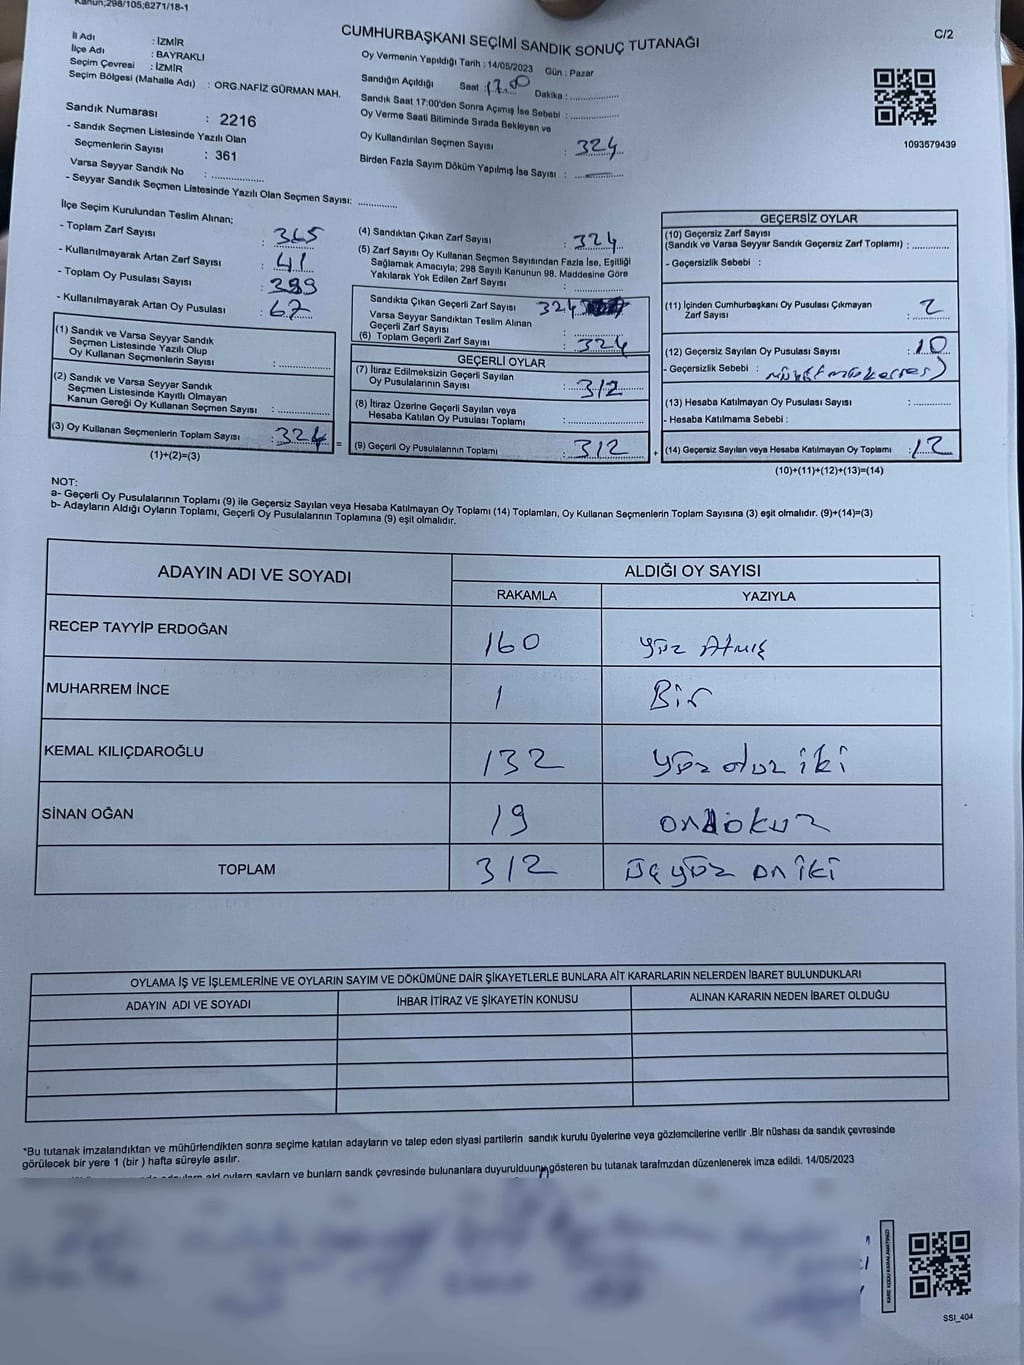 Kanun;298/105;6271/18-1
CUMHURBAŞKANI SEÇİMİ SANDIK SONUÇ TUTANAĞI
C/2
İl Adı : İZMİR
İlçe Adı : BAYRAKLI
Seçim Çevresi : İZMİR
Seçim Bölgesi (Mahalle Adı) : ORG.NAFİZ GÜRMAN MAH.
Sandık Numarası : 2216
- Sandık Seçmen Listesinde Yazılı Olan
Seçmenlerin Sayısı : 361
Varsa Seyyar Sandık No : ..............
- Seyyar Sandık Seçmen Listesinde Yazılı Olan Seçmen Sayısı: ............
Oy Vermenin Yapıldığı Tarih : 14/05/2023 Gün : Pazar
Sandığın Açıldığı Saat 17.00 Dakika : ..............
Sandık Saat 17:00'den Sonra Açımış İse Sebebi : ..............
Oy Verme Saati Bitiminde Sırada Bekleyen ve
Oy Kullandırılan Seçmen Sayısı : 324
Birden Fazla Sayım Döküm Yapılmış İse Sayısı : —
1093579439
İlçe Seçim Kurulundan Teslim Alınan:
- Toplam Zarf Sayısı : 365
- Kullanılmayarak Artan Zarf Sayısı : 41
- Toplam Oy Pusulası Sayısı : 399
- Kullanılmayarak Artan Oy Pusulası : 67
(1) Sandık ve Varsa Seyyar Sandık
Seçmen Listesinde Yazılı Olup
Oy Kullanan Seçmenlerin Sayısı : ..............
(2) Sandık ve Varsa Seyyar Sandık
Seçmen Listesinde Kayıtlı Olmayan
Kanun Gereği Oy Kullanan Seçmen Sayısı : ..............
(3) Oy Kullanan Seçmenlerin Toplam Sayısı : 324 =
(1)+(2)=(3)
(4) Sandıktan Çıkan Zarf Sayısı : 324
(5) Zarf Sayısı Oy Kullanan Seçmen Sayısından Fazla İse, Eşitliği
Sağlamak Amacıyla; 298 Sayılı Kanunun 98. Maddesine Göre
Yakılarak Yok Edilen Zarf Sayısı : ..............
Sandıkta Çıkan Geçerli Zarf Sayısı 324
Varsa Seyyar Sandıktan Teslim Alınan
Geçerli Zarf Sayısı : ..............
(6) Toplam Geçerli Zarf Sayısı : 324
GEÇERLİ OYLAR
(7) İtiraz Edilmeksizin Geçerli Sayılan
Oy Pusulalarının Sayısı : 312
(8) İtiraz Üzerine Geçerli Sayılan veya
Hesaba Katılan Oy Pusulası Toplamı : ..............
(9) Geçerli Oy Pusulalarının Toplamı : 312 +
GEÇERSİZ OYLAR
(10) Geçersiz Zarf Sayısı
(Sandık ve Varsa Seyyar Sandık Geçersiz Zarf Toplamı) : ............
- Geçersizlik Sebebi :
(11) İçinden Cumhurbaşkanı Oy Pusulası Çıkmayan
Zarf Sayısı : 2
(12) Geçersiz Sayılan Oy Pusulası Sayısı : 10
- Geçersizlik Sebebi :
(13) Hesaba Katılmayan Oy Pusulası Sayısı : ............
- Hesaba Katılmama Sebebi :
(14) Geçersiz Sayılan veya Hesaba Katılmayan Oy Toplamı : 12
(10)+(11)+(12)+(13)=(14)
NOT:
a- Geçerli Oy Pusulalarının Toplamı (9) ile Geçersiz Sayılan veya Hesaba Katılmayan Oy Toplamı (14) Toplamları, Oy Kullanan Seçmenlerin Toplam Sayısına (3) eşit olmalıdır. (9)+(14)=(3)
b- Adayların Aldığı Oyların Toplamı, Geçerli Oy Pusulalarının Toplamına (9) eşit olmalıdır.
ADAYIN ADI VE SOYADI ALDIĞI OY SAYISI
RAKAMLA YAZIYLA
RECEP TAYYİP ERDOĞAN 160 yüz Atmış
MUHARREM İNCE 1 Bir
KEMAL KILIÇDAROĞLU 132 yüz otuz iki
SİNAN OĞAN 19 ondokuz
TOPLAM 312 üçyüz on iki
OYLAMA İŞ VE İŞLEMLERİNE VE OYLARIN SAYIM VE DÖKÜMÜNE DAİR ŞİKAYETLERLE BUNLARA AİT KARARLARIN NELERDEN İBARET BULUNDUKLARI
ADAYIN ADI VE SOYADI İHBAR İTİRAZ VE ŞİKAYETİN KONUSU ALINAN KARARIN NEDEN İBARET OLDUĞU
*Bu tutanak imzalandıktan ve mühürlendikten sonra seçime katılan adayların ve talep eden siyasi partilerin sandık kurulu üyelerine veya gözlemcilerine verilir .Bir nüshası da sandık çevresinde
görülecek bir yere 1 (bir ) hafta süreyle asılır.
ald oyların sayların ve bunların sandk çevresinde bulunanlara duyurulduunu gösteren bu tutanak tarafmzdan düzenlenerek imza edildi. 14/05/2023
KARE KODU KARALAMAYINIZ
SSI_404